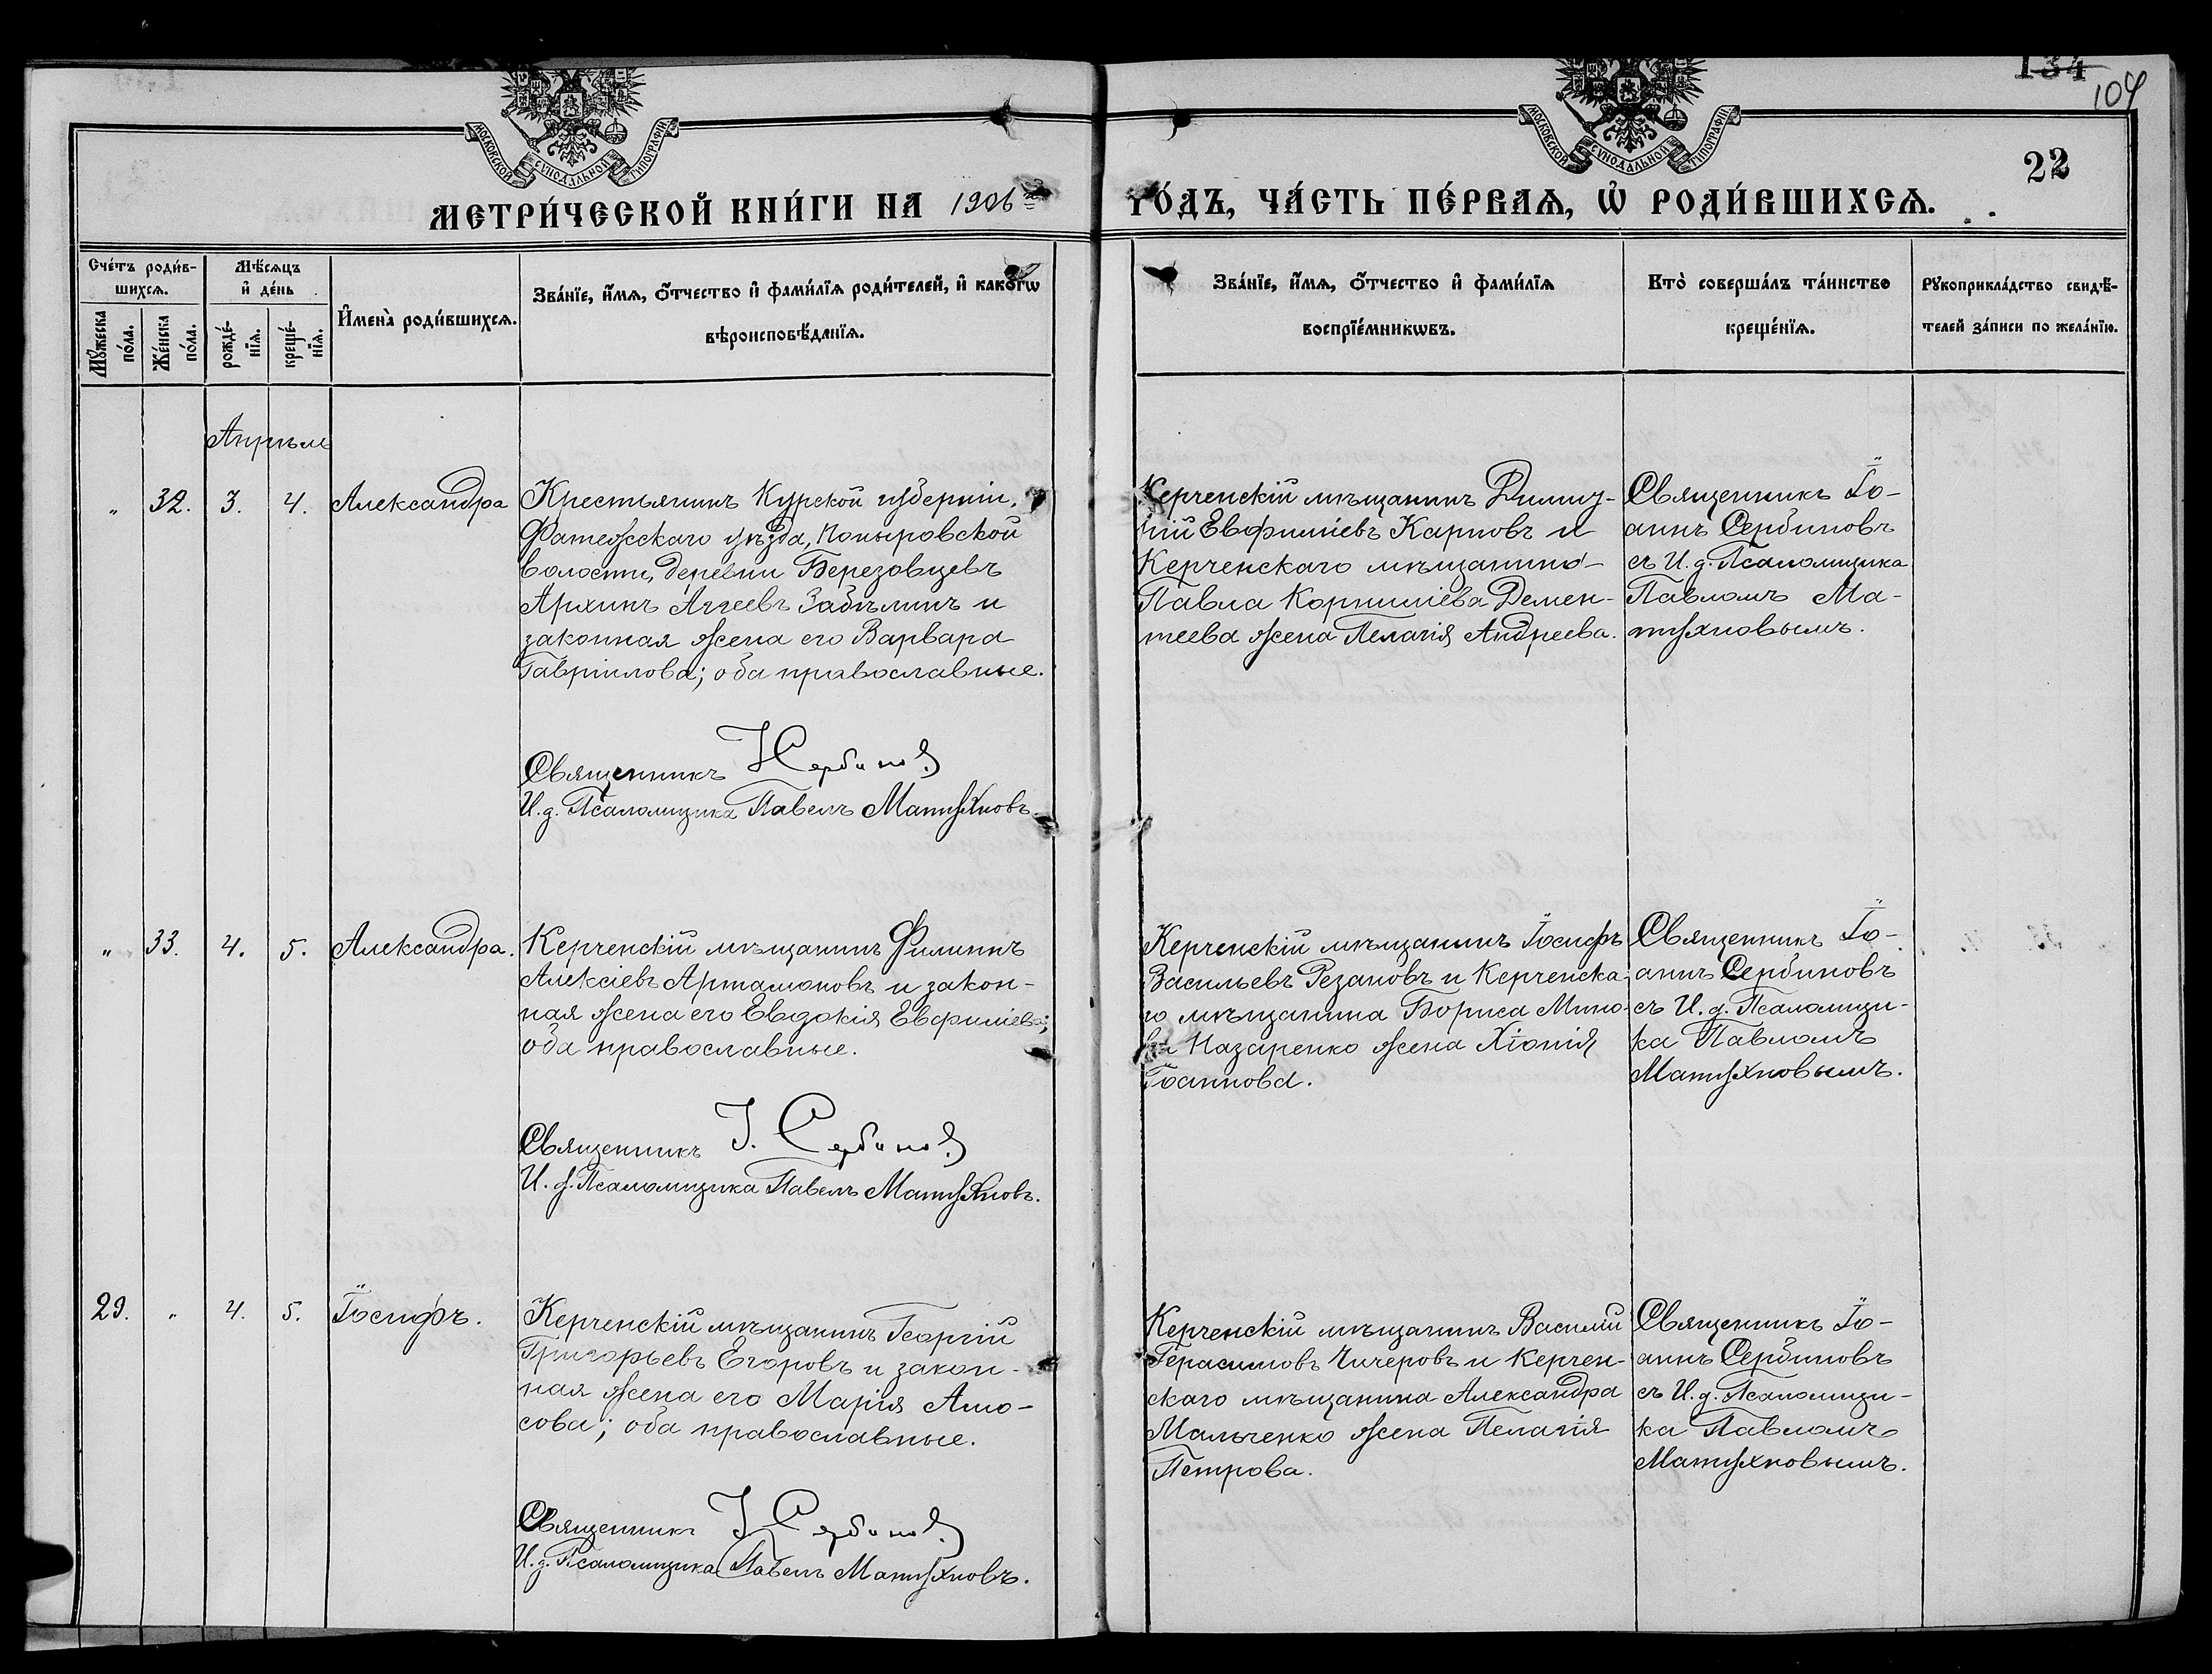 134
104
МОСКОВСКОЙ СУНОДАЛЬНОЙ ТИПОГРАФІИ
МОСКОВСКОЙ СУНОДАЛЬНОЙ ТИПОГРАФІИ
22
МЕТРИ́ЧЕСКОЙ КНИ́ГИ НА 1906 ГО́ДЪ, ЧА́СТЬ ПЕ́РВАѦ, Ѡ҆ РОДИ́ВШИХСѦ.
Сче́тъ роди́в-
шихсѧ.
Мꙋ́жеска по́ла.
Же́нска по́ла.
Мѣ́сѧцъ
и҆ де́нь
рожде́-
нїѧ.
креще́-
нїѧ.
И҆мена̀ роди́вшихсѧ.
Зва́нїе, и҆́мѧ, ѻ҆́тчество и҆ фами́лїѧ роди́телей, и҆ како́гѡ
вѣроисповѣ́данїѧ.
Зва́нїе, и҆́мѧ, ѻ҆́тчество и҆ фами́лїѧ
воспрїе́мникѡвъ.
Кто̀ соверша́лъ та́инство
креще́нїѧ.
Рꙋкоприкла́дство свидѣ́-
телей за́писи по жела́нїю.
Апрѣль
„ 32. 3. 4. Александра
Крестьянинъ Курской губерніи,
Фатежскаго уѣзда, Поныровской
волости, деревни Березовцевъ
Архипъ Аггеевъ Забѣлинъ и
законная жена его Варвара
Гавріилова; оба православные.
Священникъ І Сербиновъ
И. д. Псаломщика Павелъ Матухновъ.
Керченскій мѣщанинъ Димит-
рій Евфиміевъ Карповъ и
Керченскаго мѣщанина
Павла Корниліева Демен-
теева жена Пелагія Андреева.
Священникъ Іо-
аннъ Сербиновъ
съ И. д. Псаломщика
Павломъ Ма-
тухновымъ.
„ 33. 4. 5. Александра.
Керченскій мѣщанинъ Филиппъ
Алексіевъ Артамоновъ и закон-
ная жена его Евдокія Евфиміева;
оба православные.
Священникъ І. Сербиновъ
И. д. Псаломщика Павелъ Матухновъ.
Керченскій мѣщанинъ Іосифъ
Васильевъ Резановъ и Керченска-
го мѣщанина Бориса Мино-
ва Назаренко жена Хіонія
Іоаннова.
Священникъ Іо-
аннъ Сербиновъ
съ И. д. Псаломщи-
ка Павломъ
Матухновымъ.
29. „ 4. 5. Іосифъ.
Керченскій мѣщанинъ Георгій
Григорьевъ Егоровъ и закон-
ная жена его Марія Амо-
сова; оба православные.
Священникъ І Сербиновъ
И. д. Псаломщика Павелъ Матухновъ.
Керченскій мѣщанинъ Василій
Герасимовъ Чичеровъ и Керчен-
скаго мѣщанина Александра
Мальченко жена Пелагія
Петрова.
Священникъ Іо-
аннъ Сербиновъ
съ И. д. Псаломщи-
ка Павломъ
Матухновымъ.